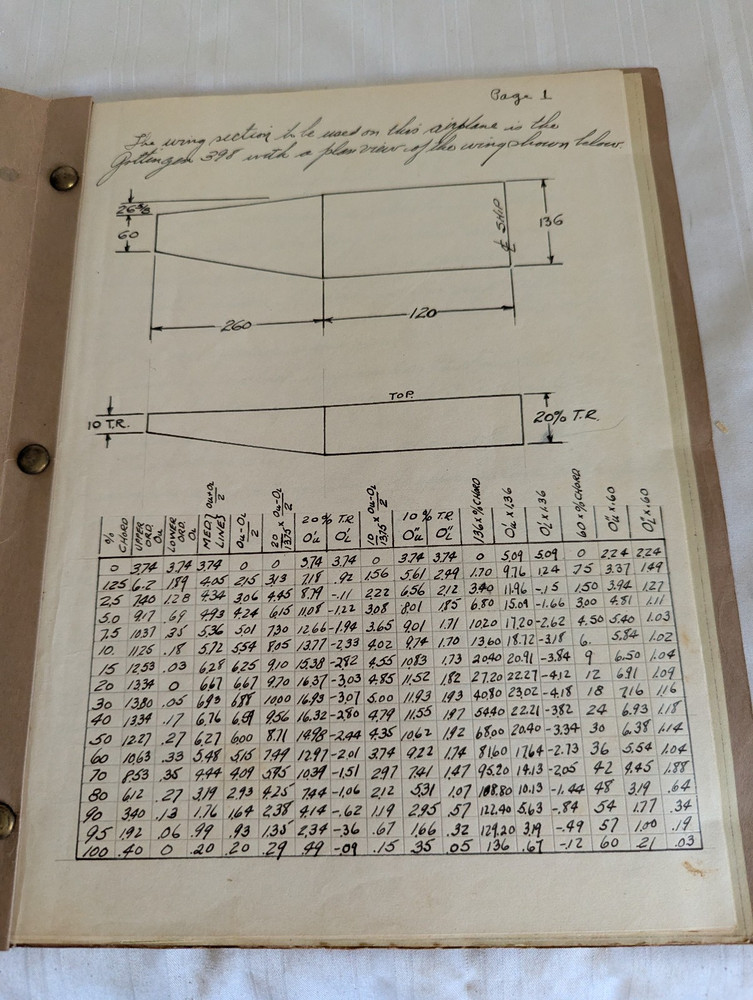 Page 1
The wing section to be used on this airplane is the
Gottingen 398 with a plan view of the wing shown below.
26⅗
60
℄ SHIP
136
260
120
TOP
10 T.R.
20% T.R.
% CHORD UPPER ORD. Ou LOWER ORD. OL MED. LINES Ou+OL/2 Ou-OL/2 20/13.75 x Ou-OL/2 20% T.R. O'u O'L 10/13.75 x Ou-OL/2 10% T.R. O"u O"L 136 x % CHORD O'u x 1.36 O'L x 1.36 60 x % CHORD O"u x .60 O"L x .60
0 3.74 3.74 3.74 0 0 3.74 3.74 0 3.74 3.74 0 5.09 5.09 0 2.24 2.24
1.25 6.2 1.89 4.05 2.15 3.13 7.18 .92 1.56 5.61 2.49 1.70 9.76 1.24 .75 3.37 1.49
2.5 7.40 1.28 4.34 3.06 4.45 8.79 -.11 2.22 6.56 2.12 3.40 11.96 -.15 1.50 3.94 1.27
5.0 9.17 .69 4.93 4.24 6.15 11.08 -1.22 3.08 8.01 1.85 6.80 15.09 -1.66 3.00 4.81 1.11
7.5 10.37 .35 5.36 5.01 7.30 12.66 -1.94 3.65 9.01 1.71 10.20 17.20 -2.62 4.50 5.40 1.03
10. 11.25 .18 5.72 5.54 8.05 13.77 -2.33 4.02 9.74 1.70 13.60 18.72 -3.18 6. 5.84 1.02
15 12.53 .03 6.28 6.25 9.10 15.38 -2.82 4.55 10.83 1.73 20.40 20.91 -3.84 9 6.50 1.04
20 13.34 0 6.67 6.67 9.70 16.37 -3.03 4.85 11.52 1.82 27.20 22.27 -4.12 12 6.91 1.09
30 13.80 .05 6.93 6.88 10.00 16.93 -3.07 5.00 11.93 1.93 40.80 23.02 -4.18 18 7.16 1.16
40 13.34 .17 6.76 6.59 9.56 16.32 -2.80 4.79 11.55 1.97 54.40 22.21 -3.82 24 6.93 1.18
50 12.27 .27 6.27 6.00 8.71 14.98 -2.44 4.35 10.62 1.92 68.00 20.40 -3.34 30 6.38 1.14
60 10.63 .33 5.48 5.15 7.49 12.97 -2.01 3.74 9.22 1.74 81.60 17.64 -2.73 36 5.54 1.04
70 8.53 .35 4.44 4.09 5.95 10.39 -1.51 2.97 7.41 1.47 95.20 14.13 -2.05 42 4.45 1.88
80 6.12 .27 3.19 2.93 4.25 7.44 -1.06 2.12 5.31 1.07 108.80 10.13 -1.44 48 3.19 .64
90 3.40 .13 1.76 1.64 2.38 4.14 -.62 1.19 2.95 .57 122.40 5.63 -.84 54 1.77 .34
95 1.92 .06 .99 .93 1.35 2.34 -.36 .67 1.66 .32 129.20 3.19 -.49 57 1.00 .19
100 .40 0 .20 .20 .29 .49 -.09 .15 .35 .05 136 .67 -.12 60 .21 .03